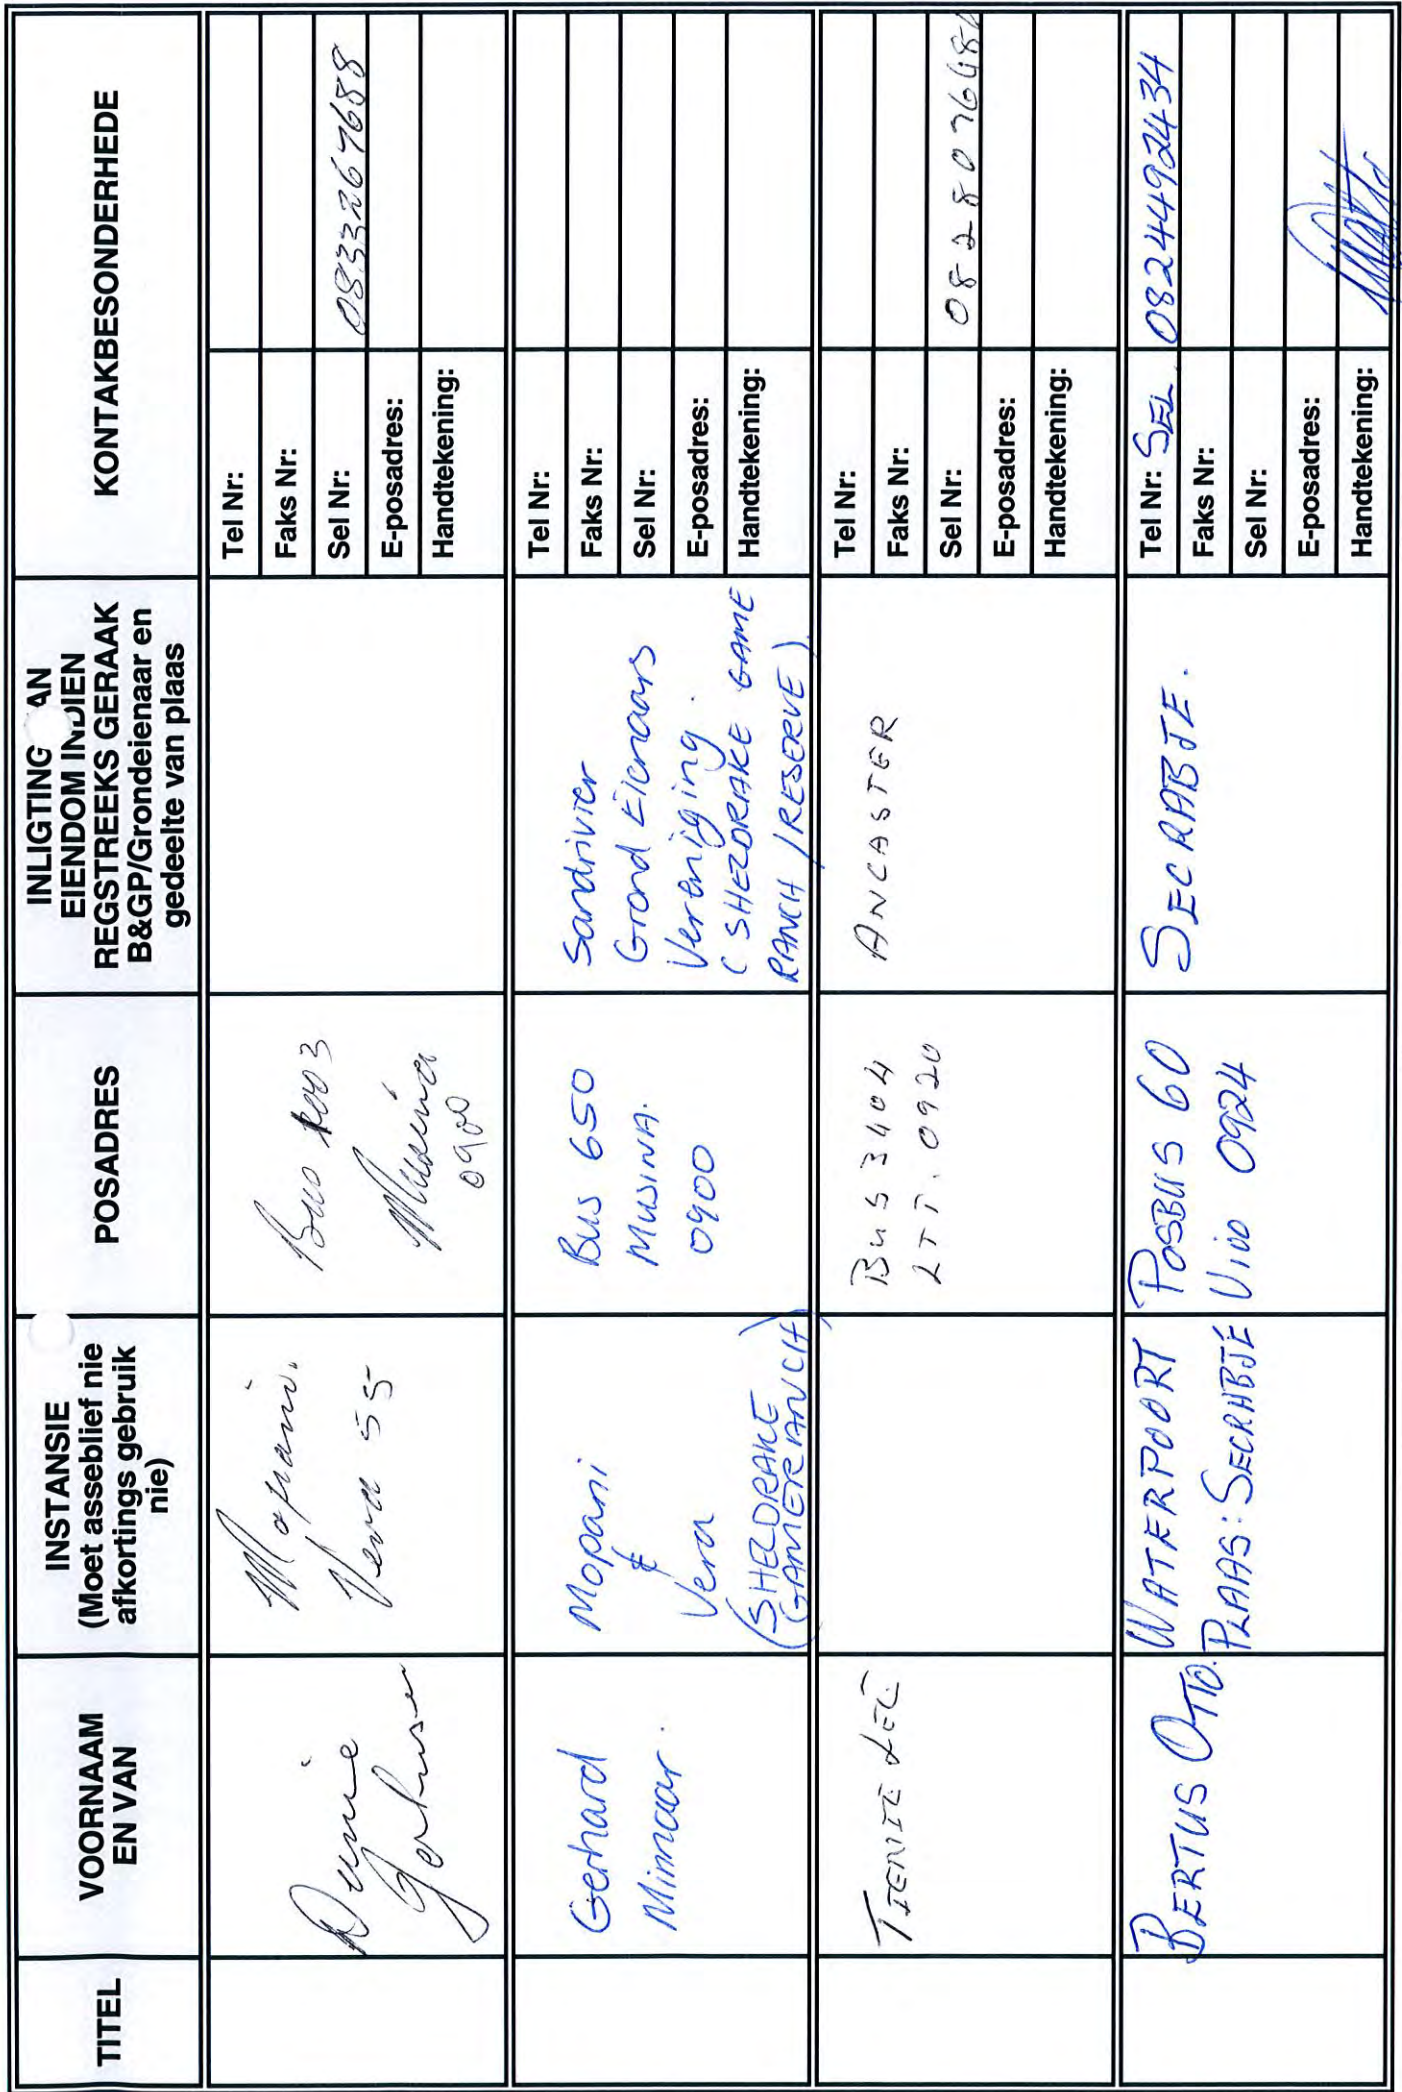 TITEL
VOORNAAM
EN VAN
INSTANSIE
(Moet asseblief nie
afkortings gebruik
nie)
POSADRES
INLIGTING AN
EIENDOM INDIEN
REGSTREEKS GERAAK
B&GP/Grondeienaar en
gedeelte van plaas
KONTAKBESONDERHEDE
Mopani.
Vera 55
Bus
Musina
0900
Tel Nr:
Faks Nr:
Sel Nr: 0833267688
E-posadres:
Handtekening:
Gerhard
Minnaar.
Mopani
&
Vera
(SHELDRAKE
GAMERANCH)
Bus 650
MUSINA.
0900
Sandrivier
Grond Eienaars
Vereniging.
(SHELDRAKE GAME
RANCH / RESERVE)
Tel Nr:
Faks Nr:
Sel Nr:
E-posadres:
Handtekening:
BUS 3404
LTT. 0920
ANCASTER
Tel Nr:
Faks Nr:
Sel Nr:
E-posadres:
Handtekening:
BERTUS OTTO.
WATERPOORT
PLAAS: SECRABJE
POSBUS 60
Vivo 0924
SECRABJE.
Tel Nr: SEL. 0824492434
Faks Nr:
Sel Nr:
E-posadres:
Handtekening: